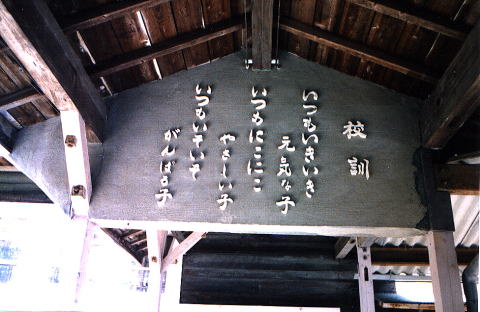 校訓
いつもいきいき
元気な子
いつもにこにこ
やさしい子
いつもいそいそ
がんばる子